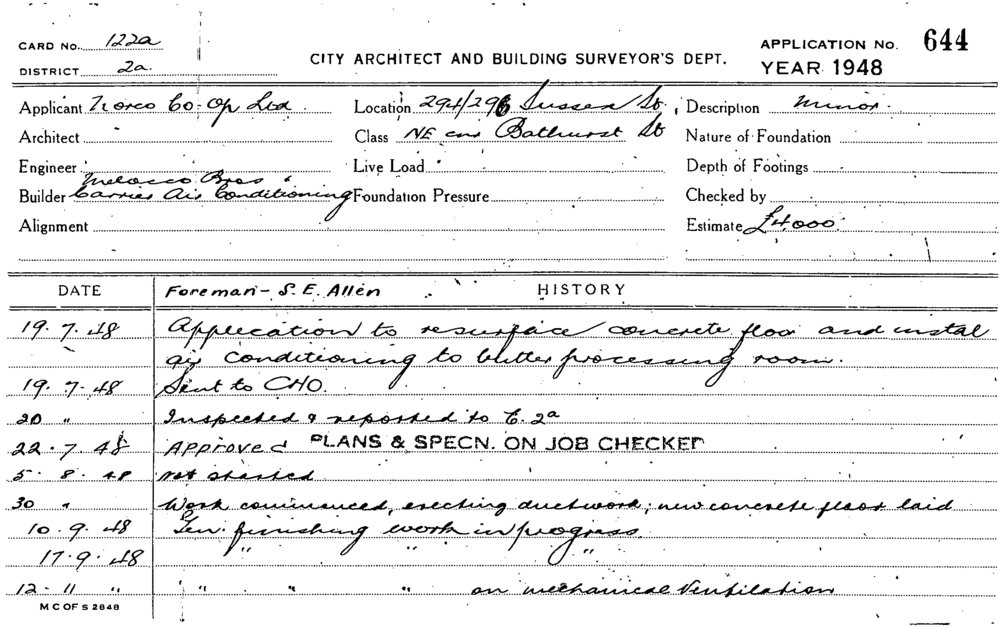 CARD No. 122a
DISTRICT 2a.
CITY ARCHITECT AND BUILDING SURVEYOR'S DEPT.
APPLICATION No. 644
YEAR 1948
Applicant Norco Co-Op Ltd. Location 294/296 Sussex St. Description Minor.
Architect Class NE cnr Bathurst St Nature of Foundation
Engineer Live Load Depth of Footings
Melocco Bros &
Builder Carrier Air Conditioning Foundation Pressure Checked by
Alignment Estimate £4000.
DATE Foreman - S. E. Allen HISTORY
19. 7. 48 Application to resurface concrete floor and instal
air conditioning to butter processing room.
19. 7. 48 Sent to CHO.
20 " Inspected & reported to C. 2a
22. 7. 48 Approved PLANS & SPECN. ON JOB CHECKED
5. 8. 48 Not started
30 " Work commenced, erecting ductwork; new concrete floor laid
10. 9. 48 Gen. finishing work in progress.
17. 9. 48 " " "
12 - 11 " " " " on mechanical Ventilation
M C OF S 2648